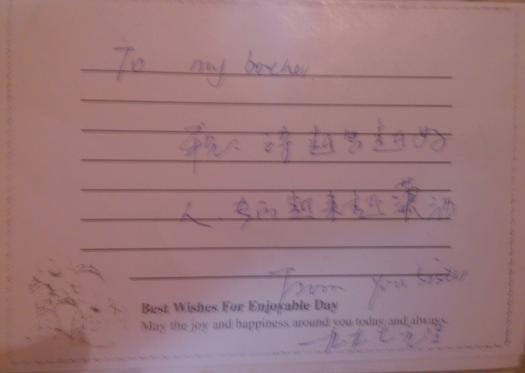 To my brother
祝：诗越写越好
人越来越潇洒
From your sister
Best Wishes For Enjoyable Day
May the joy and happiness around you today and always.